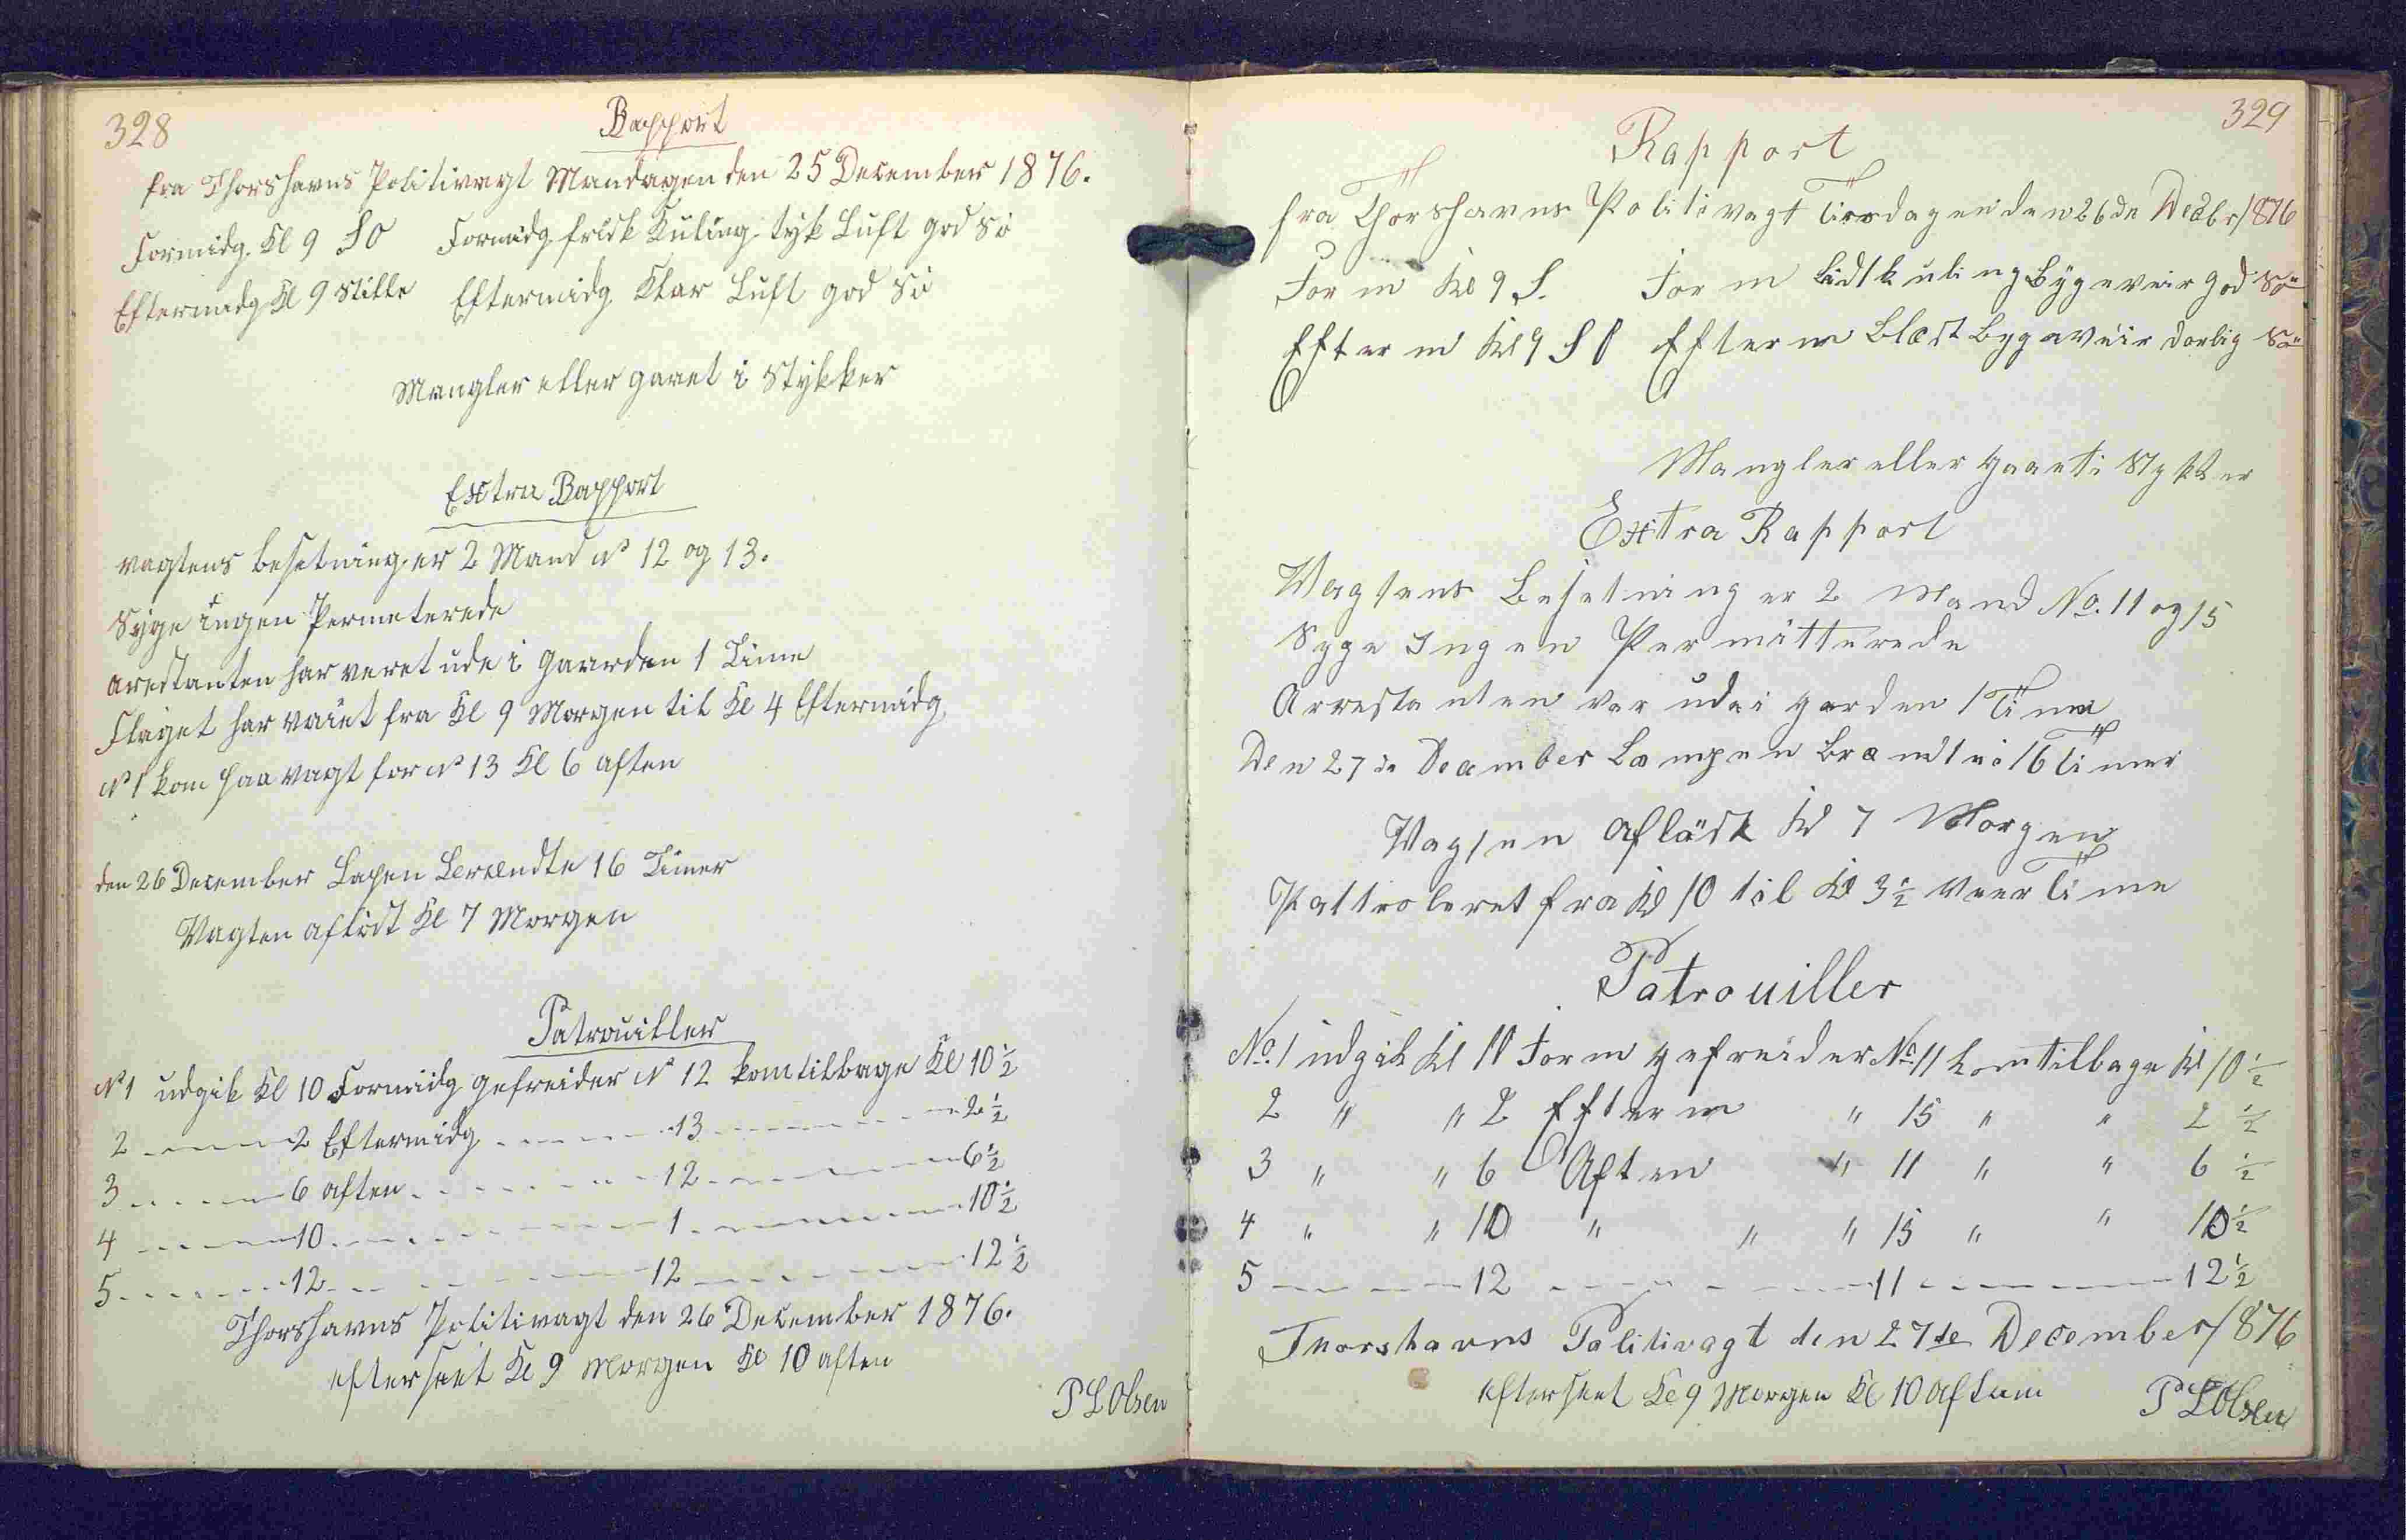 328
Rapport
fra Thorshavns Politivagt Mandagen den 25 December 1876.
Formidg. Kl 9 SO Formidg frisk Kuling tyk Luft god Sö
Eftermidg Kl 9 Stille Eftermidg Klar Luft god Sö
Mangler eller gaaet i Stykker
Extra Rapport
vagtens besetning er 2 Mand No 12 og 13.
Syge ingen Permeterede
arestanten har veret ude i Gaarden 1 Time
Flaget har vaiet fra Kl 9 Morgen til Kl 4 Eftermidg
No 1 kom paa vagt for No 13 Kl 6 aften
den 26 December Lapen Brændte 16 Timer
Vagten aflöst Kl 7 Morgen
Patrouiller
No 1 udgik Kl 10 Formidg gefreider No 12 kom tilbage Kl 10 1/2
2 - - - - 2 Eftermidg - - - - - 13 - - - - - 2 1/2
3 - - - - 6 aften - - - - - 12 - - - - - 6 1/2
4 - - - - 10 - - - - - 1 - - - - - 10 1/2
5 - - - - 12 - - - - - 12 - - - - - 12 1/2
Thorshavns Politivagt den 26 December 1876.
efterseet Kl 9 Morgen Kl 10 aften
P L Olsen
329
Rapport
fra Thorshavns Politivagt Tirsdagen den 26de Decbr 1876
Form Kl 9 S. Form Lidt kuling Bygeveir god Sö
Efterm Kl 9 S O Efterm Blæst Bygeveir Dorlig Sö
Mangler eller gaaet i Stykker
Extra Rapport
Vagtens Besetning er 2 Mand No. 11 og 15
Syge Ingen Permitterede
Arrestanten var ude i garden 1 Time
Den 27de December Lampen Brændte 16 timer
Vagten aflöst Kl 7 Morgen
Pattroleret fra Kl 10 til Kl 3 1/2 veer Time
Patrouiller
No. 1 udgik Kl 10 Form gefreider No. 11 kom tilbage Kl 10 1/2
2 " " 2 Efterm " 15 " " 2 1/2
3 " " 6 Aften " 11 " " 6 1/2
4 " " 10 " " " 15 " " 10 1/2
5 - - - - 12 - - - - - 11 - - - - - 12 1/2
Thorshavns Politivagt den 27de December 1876
efterseet Kl 9 Morgen Kl 10 Aften
P L Olsen